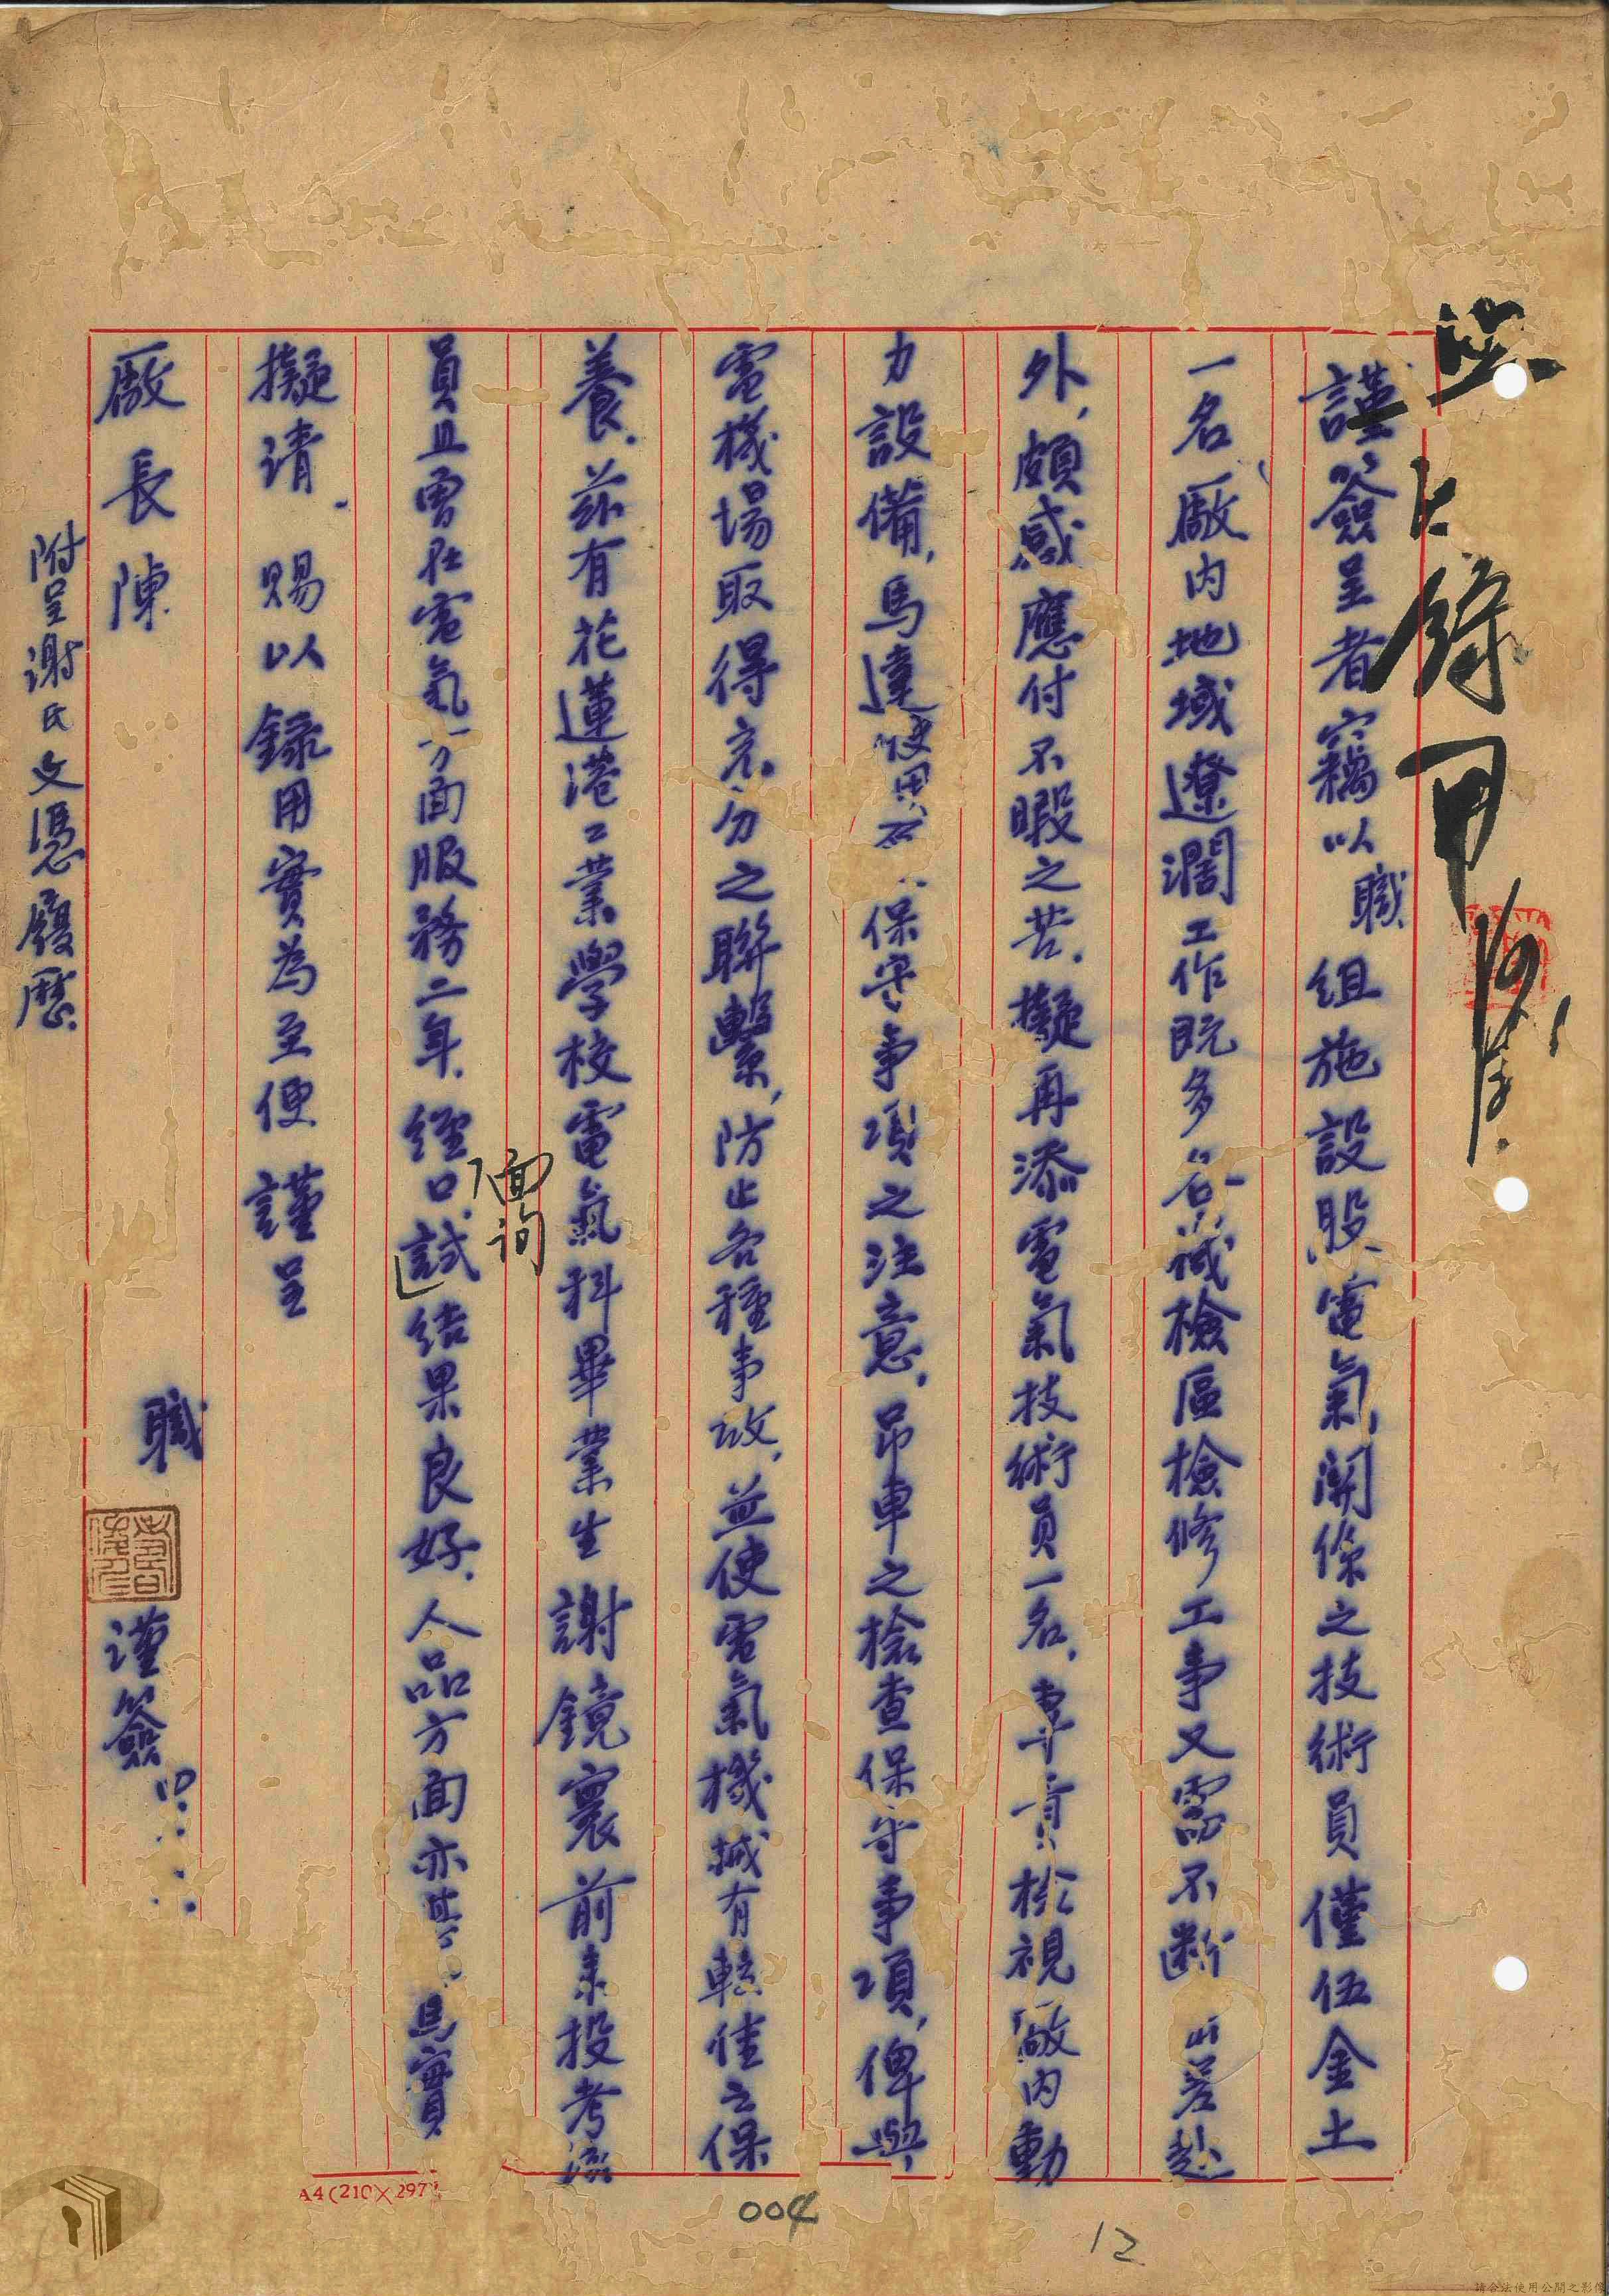 謹簽呈者竊以職組施設股電氣關係之技術員僅伍金土
一名廠內地域遼濶工作既多名減檢區檢修工事又需不斷出差赴
外，頗感應付不暇之苦．擬再添電氣技術員一名．專責檢視廠內動
力設備，馬達使用保守事項之注意，吊車之檢查保守事項，俾與
電機場取得充分之聯繫，防止各種事故，並使電氣機械有較佳之保
養．茲有花蓮港工業學校電氣科畢業生謝鏡寰前來投考
員且曾在電氣方面服務二年．經口試結果良好．人品方面亦甚實
面询
擬請．賜以錄用實為至便 謹呈
廠長陳
職 謹簽
附呈謝氏文憑履歷．
A4(210×297
004
12
請合法使用公開之影像